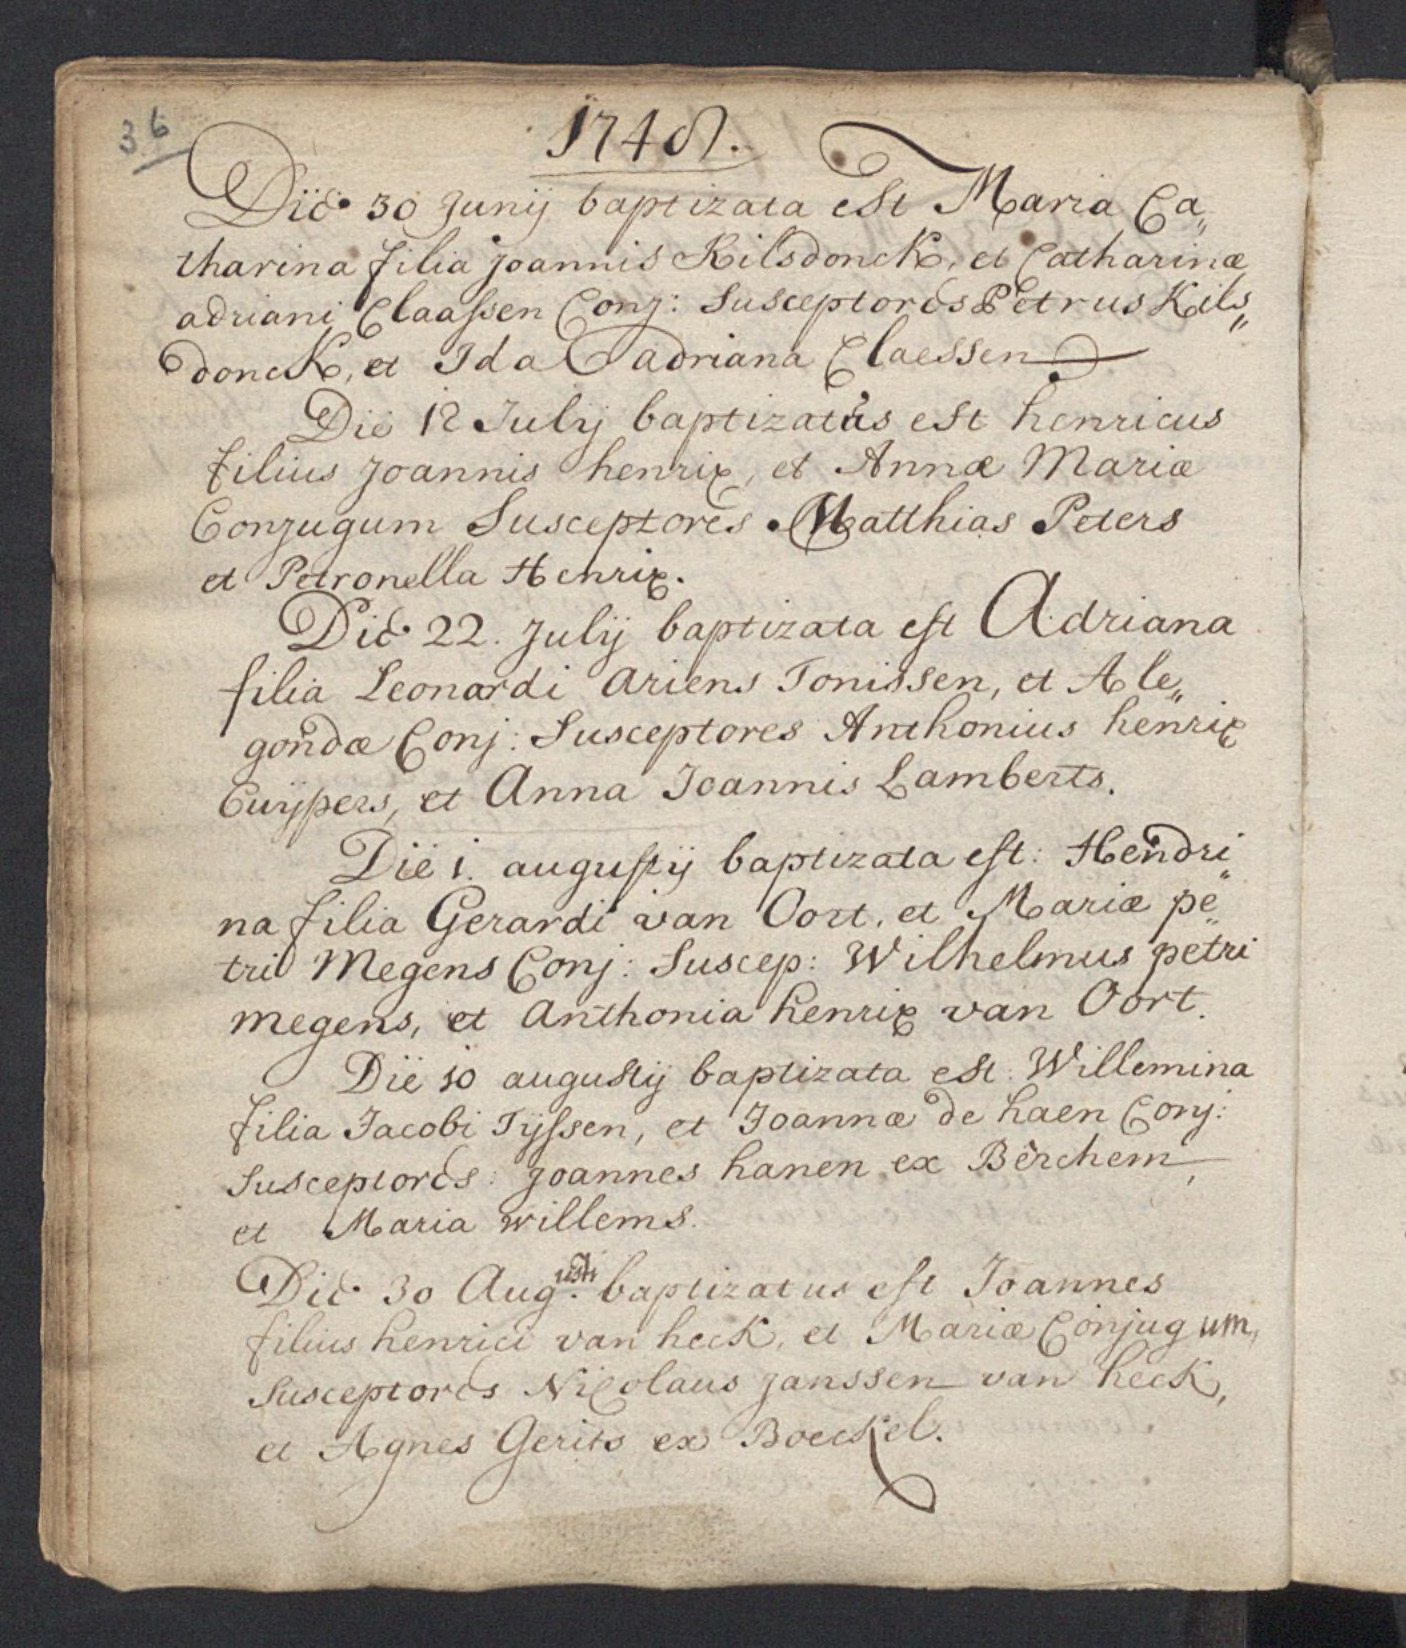 36
1748.
Die 30 Junij baptizata est Maria Ca„
tharina filia Joannis Kilsdonck, et Catharinæ
adriani Claassen Conj: Susceptores Petrus Kils„
donck, et Ida adriana Claessen
Die 12 Julij baptizatus est henricus
filius Joannis henrix, et Annæ Mariæ
Conjugum Susceptores Matthias Peters
et Petronella Henrix.
Die 22. Julij baptizata est Adriana
filia Leonardi Ariens Tonissen, et Ale„
gondæ Conj: Susceptores Anthonius henrix
Cuÿpers, et Anna Joannis Lamberts.
Die 1. augustij baptizata est: Hendri„
na filia Gerardi van Oort, et Mariæ pe„
tri Megens Conj: Suscep: Wilhelmus petri
megens, et Anthonia henrix van Oort.
Die 10 augustij baptizata est: Willemina
filia Jacobi Tÿssen, et Joannæ de haen Conj:
Susceptores: Joannes hanen ex Berchem,
et Maria willems.
Die 30 Augusti baptizatus est Joannes
filius henrici van heck, et Mariæ Conjugum,
Susceptores Nicolaus Janssen van heck,
et Agnes Gerits ex Boeckel.